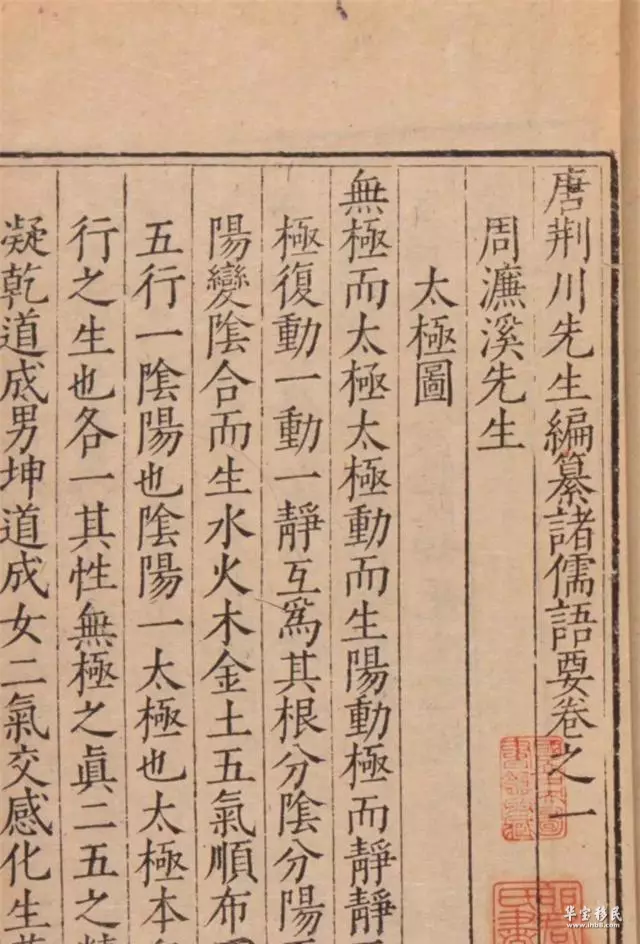 唐荆川先生編纂諸儒語要卷之一
周濂溪先生
太極圖
無極而太極太極動而生陽動極而靜靜
極復動一動一靜互爲其根分陰分陽
陽變陰合而生水火木金土五氣順布
五行一陰陽也陰陽一太極也太極本
行之生也各一其性無極之眞二五之精
凝乾道成男坤道成女二氣交感化生
华宝移民
www.ihbk.com